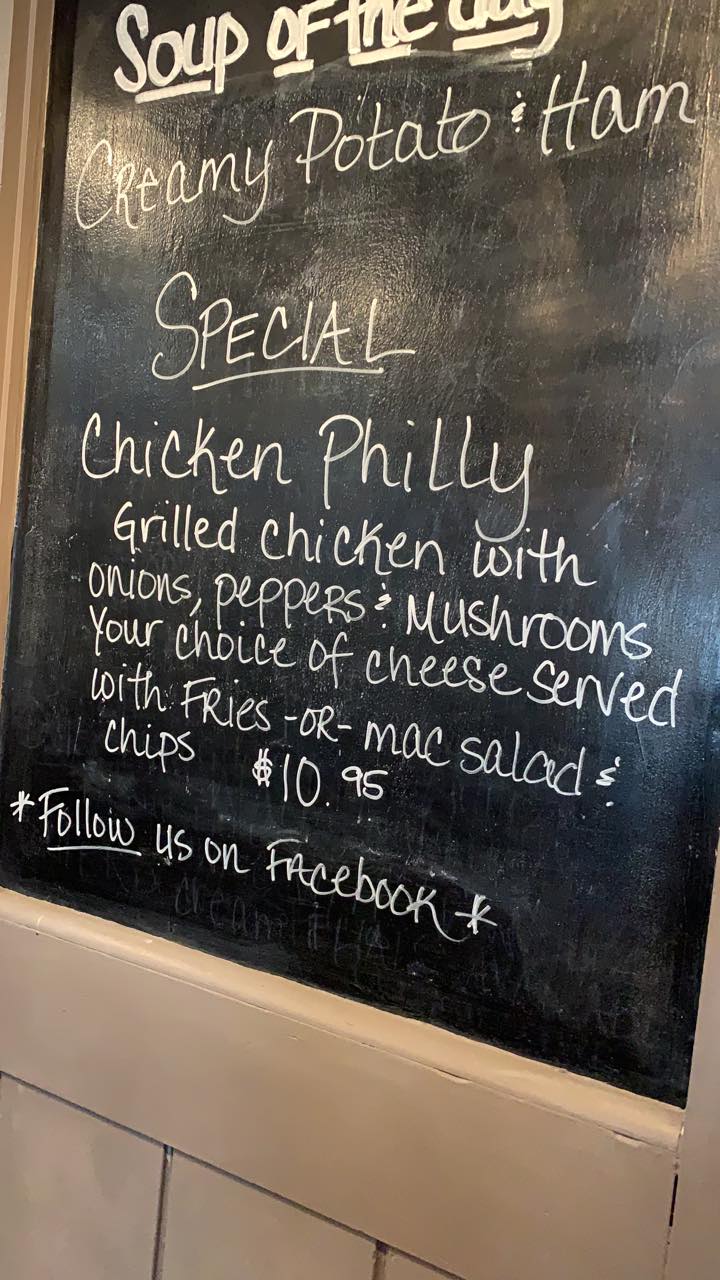 Soup of the day
Creamy Potato & Ham
SPECIAL
Chicken Philly
Grilled chicken with
onions, peppers & Mushrooms
Your choice of cheese served
with Fries -OR- mac salad &
chips $10.95
*Follow us on Facebook*